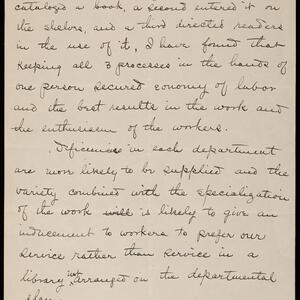 catalogd a book, a second enterd it on
the shelvs, and a third directed readers
in the use of it, I have found that
keeping all 3 processes in the hands of
one person secured economy of labor
and the best results in the work and
the enthusiasm of the workers.
Deficiencies in each department
are more likely to be supplied and the
variety combined with the specialization
of the work will is likely to give an
inducement to workers to prefer our
service rather than service in a
library not arranged on the departmental
plan